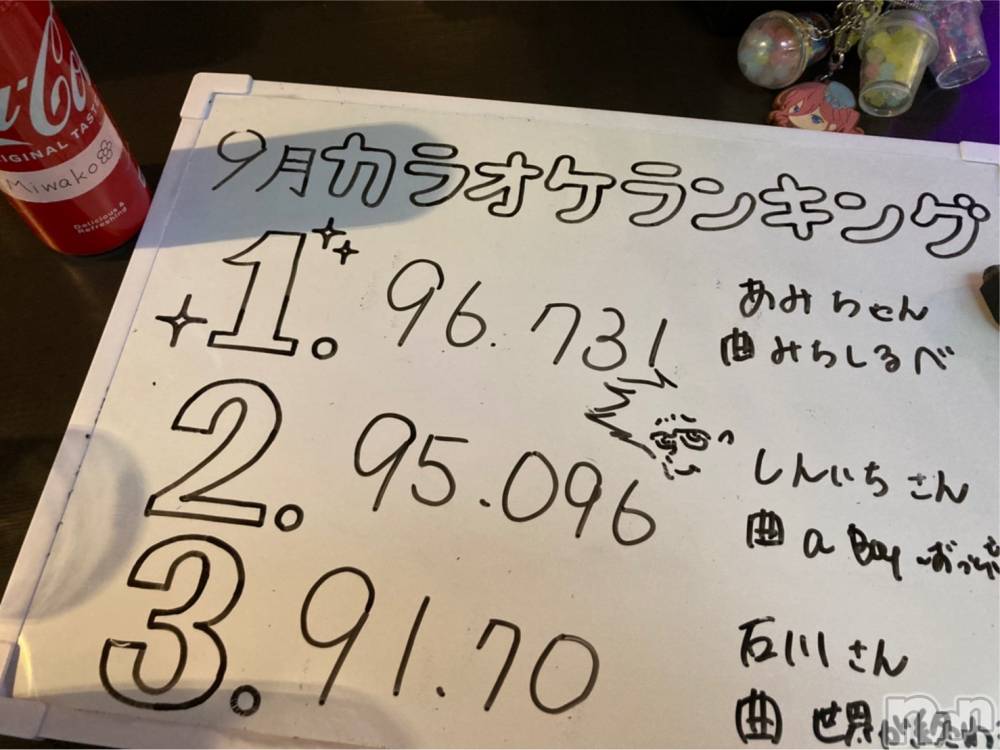 9月カラオケランキング
1. 96.731
あみちゃん
曲 みちしるべ
2. 95.096
しんいちさん
曲 a Boy ~おっさ
3. 91.70
石川さん
曲 世界が終わ
Miwako
ORIGINAL TAS
Delicious &
Refreshing